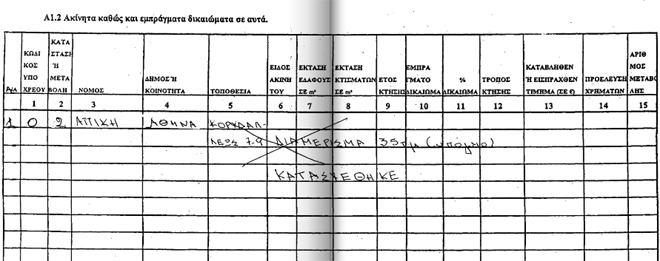 Α1.2 Ακίνητα καθώς και εμπράγματα δικαιώματα σε αυτά.
Α/Α ΚΩΔΙΚΟΣ ΥΠΟΧΡΕΟΥ ΚΑΤΑΣΤΑΣΗ Ή ΜΕΤΑΒΟΛΗ ΝΟΜΟΣ ΔΗΜΟΣ Ή ΚΟΙΝΟΤΗΤΑ ΤΟΠΟΘΕΣΙΑ ΕΙΔΟΣ ΑΚΙΝΗΤΟΥ ΕΚΤΑΣΗ ΕΔΑΦΟΥΣ ΣΕ m² ΕΚΤΑΣΗ ΚΤΙΣΜΑΤΩΝ ΣΕ m² ΕΤΟΣ ΚΤΗΣΗΣ ΕΜΠΡΑΓΜΑΤΟ ΔΙΚΑΙΩΜΑ % ΔΙΚΑΙΩΜΑ ΤΡΟΠΟΣ ΚΤΗΣΗΣ ΚΑΤΑΒΛΗΘΕΝ Ή ΕΙΣΠΡΑΧΘΕΝ ΤΙΜΗΜΑ (ΣΕ €) ΠΡΟΕΛΕΥΣΗ ΧΡΗΜΑΤΩΝ ΑΡΙΘΜΟΣ ΜΕΤΑΒΟΛΗΣ
1 2 3 4 5 6 7 8 9 10 11 12 13 14 15
1 0 2 ΑΤΤΙΚΗ ΑΘΗΝΑ
ΔΙΑΜΕΡΙΣΜΑ 35τμ (υπόγειο)
ΚΑΤΑΣΧΕΘΗΚΕ